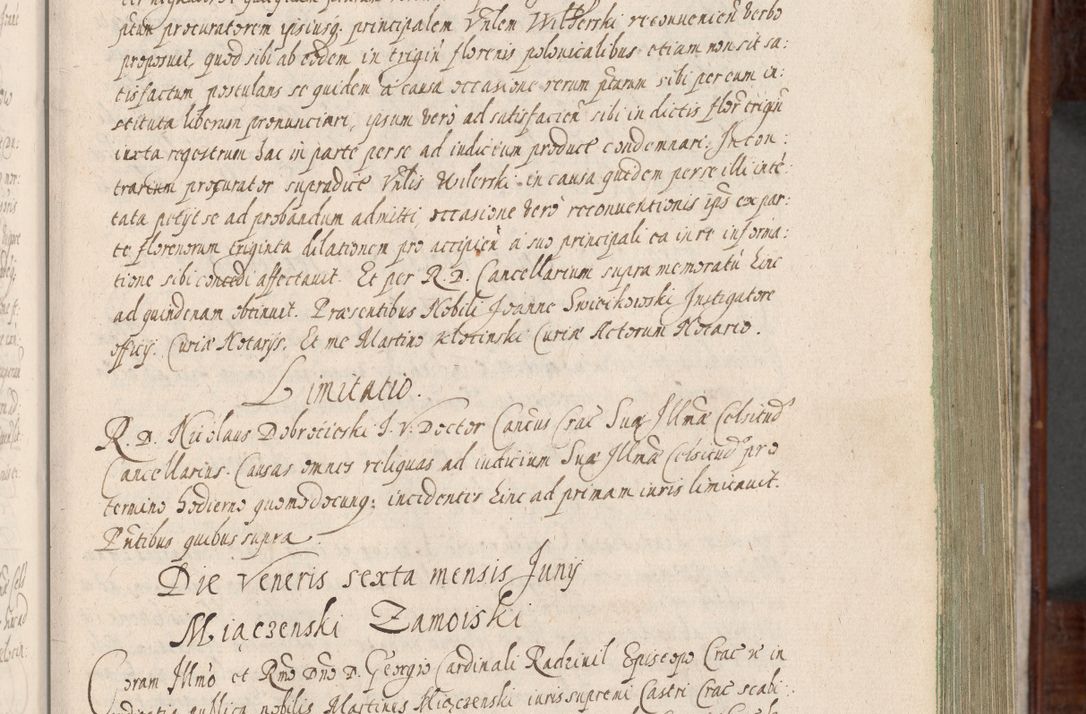 ptum procuratorem ipsiusq. principalem Vnlem Wilkerski reconuenien̄ verbo
proposuit, quod sibi ab eodem in trigin̄ florenis polonicalibus etiam non sit sa:
tisfactum postulans se quidem a causa occasione rerum p̄tarum sibi per eum in:
stituta liberum pronunciari, ipsum verò ad satisfacien̄ sibi in dictis flor̄ trigin̄
iuxta regestrum hac in parte per se ad iudicium product condemnari. In con:
trarium procurator supradict Vnlis Wilerski in causa quidem per se illi inte:
tata petijt se ad probandum admitti, occasione verò reconuentionis ips ex par:
te florenorum triginta dilationem pro accipien̄ a suo principali ea in re informa:
tione sibi concedi affectauit. Et per R. D. Cancellarium supra memoratū hinc
ad quindenam obtinuit. Præsentibus Nobili Joanne Swiecikowski Instigatore
officij. Curiæ Notarijs. Et me Martino Klocinski Curiæ Actorum Notario.
Limitatio.
R. D. Nicolaus Dobrocieski I. V. Doctor Cancus Crac Suæ Illmæ Celsitud
Cancellarius. Causas omnes reliquas ad iudicium Suæ Illmæ Celsitud pro
termino hodierno quomodocunq; incidentes hinc ad primam iuris limitauit.
Pn̄tibus quibus supra.
Die Veneris sexta mensis Junij
Miączenski Zamoiski
Coram Illmo et Rmo Dno D. Georgio Cardinali Radziuil Episcopo Crac &c in
publica nobilis Martinus Miączenski iuris supremi Castri Crac scabi: